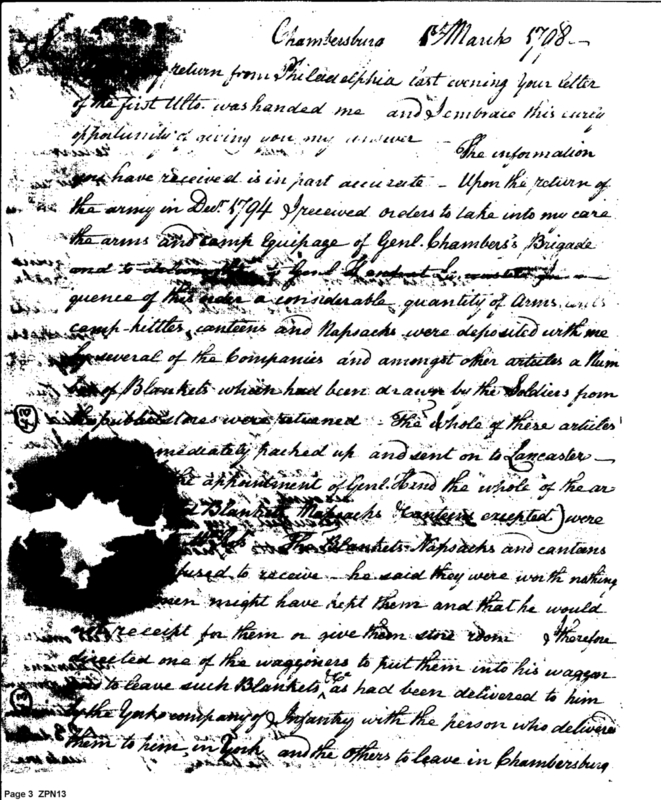 Chambersburg 1st March 1798 —
return from Philadelphia last evening your letter
of the first Ulto. was handed me and I embrace this early
opportunity of giving you my answer — The information
you have received is in part accurate – Upon the return of
the army in Decr. 1794 I received orders to take into my care
the arms and camp Equipage of Genl. Chambers's Brigade
and to Genl
quence of this order a considerable quantity of arms,
camp-kittles, canteens and Napsacks were deposited with me
by several of the Companies and amongst other articles a Num
ber of Blankets which had been drawn by the Soldiers from
the public stores were returned – The whole of these articles
mediately packed up and sent on to Lancaster —
appointment of Genl. Hand the whole of the ar
Blankets Napsacks & canteens excepted) were
The Blankets Napsacks and canteens
fused to receive – he said they were worth nothing
men might have kept them and that he would
not receipt for them or give them store room I therefore
directed one of the waggoners to put them into his waggon
and to leave such Blankets &c as had been delivered to him
by the York company of Infantry with the person who delivered
them to him in York and the others to leave in Chambersburg
Page 3 ZPN13